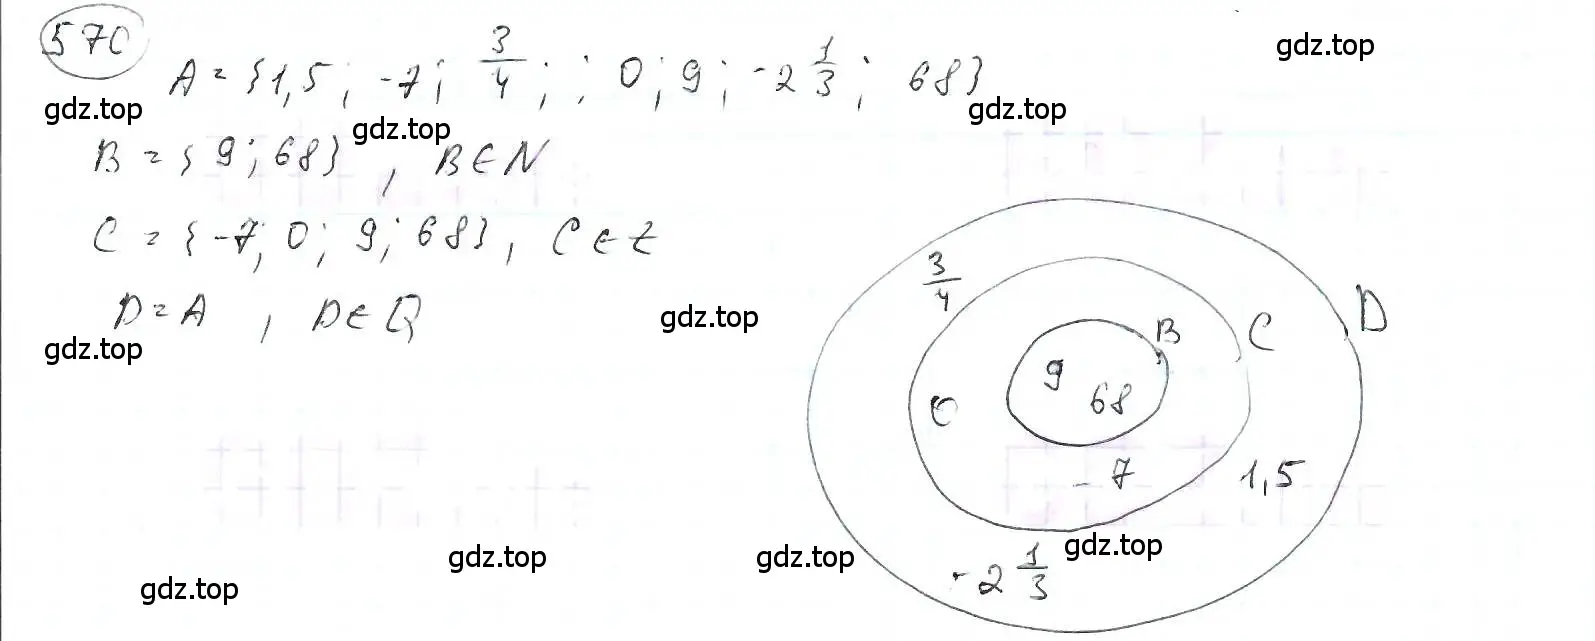 570
A = {1,5 ; -7 ; 3/4 ; ; 0 ; 9 ; -2 1/3 ; 68}
gdz.top
gdz.top
gdz.top
gdz.top
B = { 9 ; 68} , B ∈ N
C = { -7 ; 0 ; 9 ; 68} , C ∈ Z
D = A , D ∈ Q
gdz.top
gdz.top
3/4
B
C
D
9
68
0
-7
1,5
-2 1/3
gdz.top
gdz.top
gdz.top
gdz.top